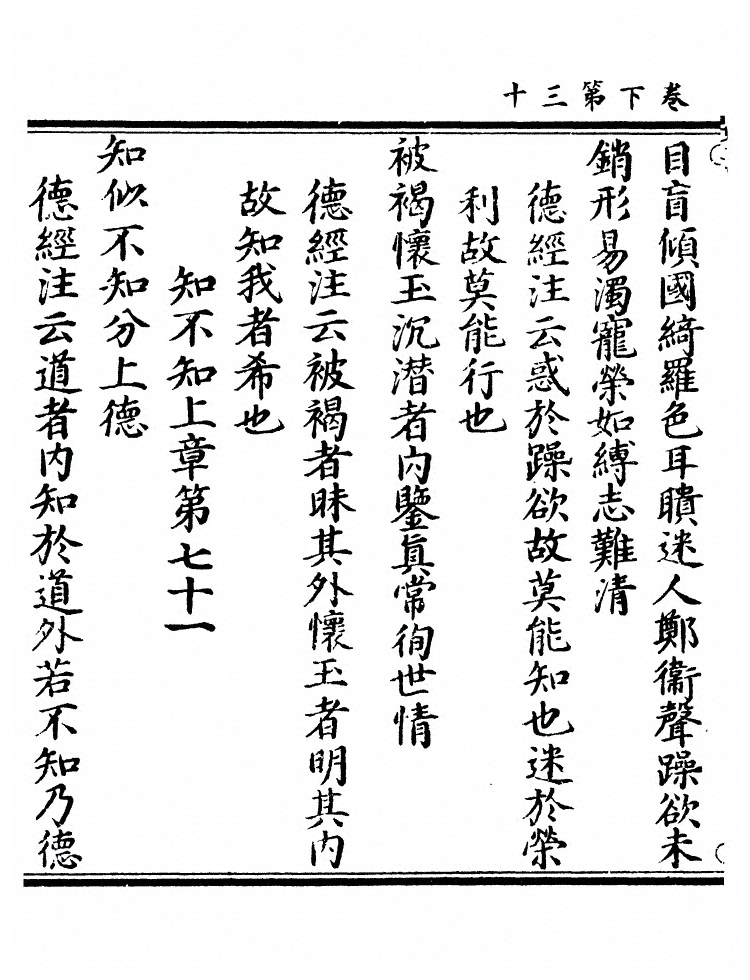 卷下第三十
目盲傾國綺羅色耳聵迷人鄭衞聲躁欲未
銷形易濁寵榮如縛志難清
德經注云惑於躁欲故莫能知也迷於榮
利故莫能行也
被褐懷玉沉潜者内鑒真常徇世情
德經注云被褐者昧其外懷玉者明其内
故知我者希也
知不知上章第七十一
知似不知分上德
德經注云道者内知於道外若不知乃德